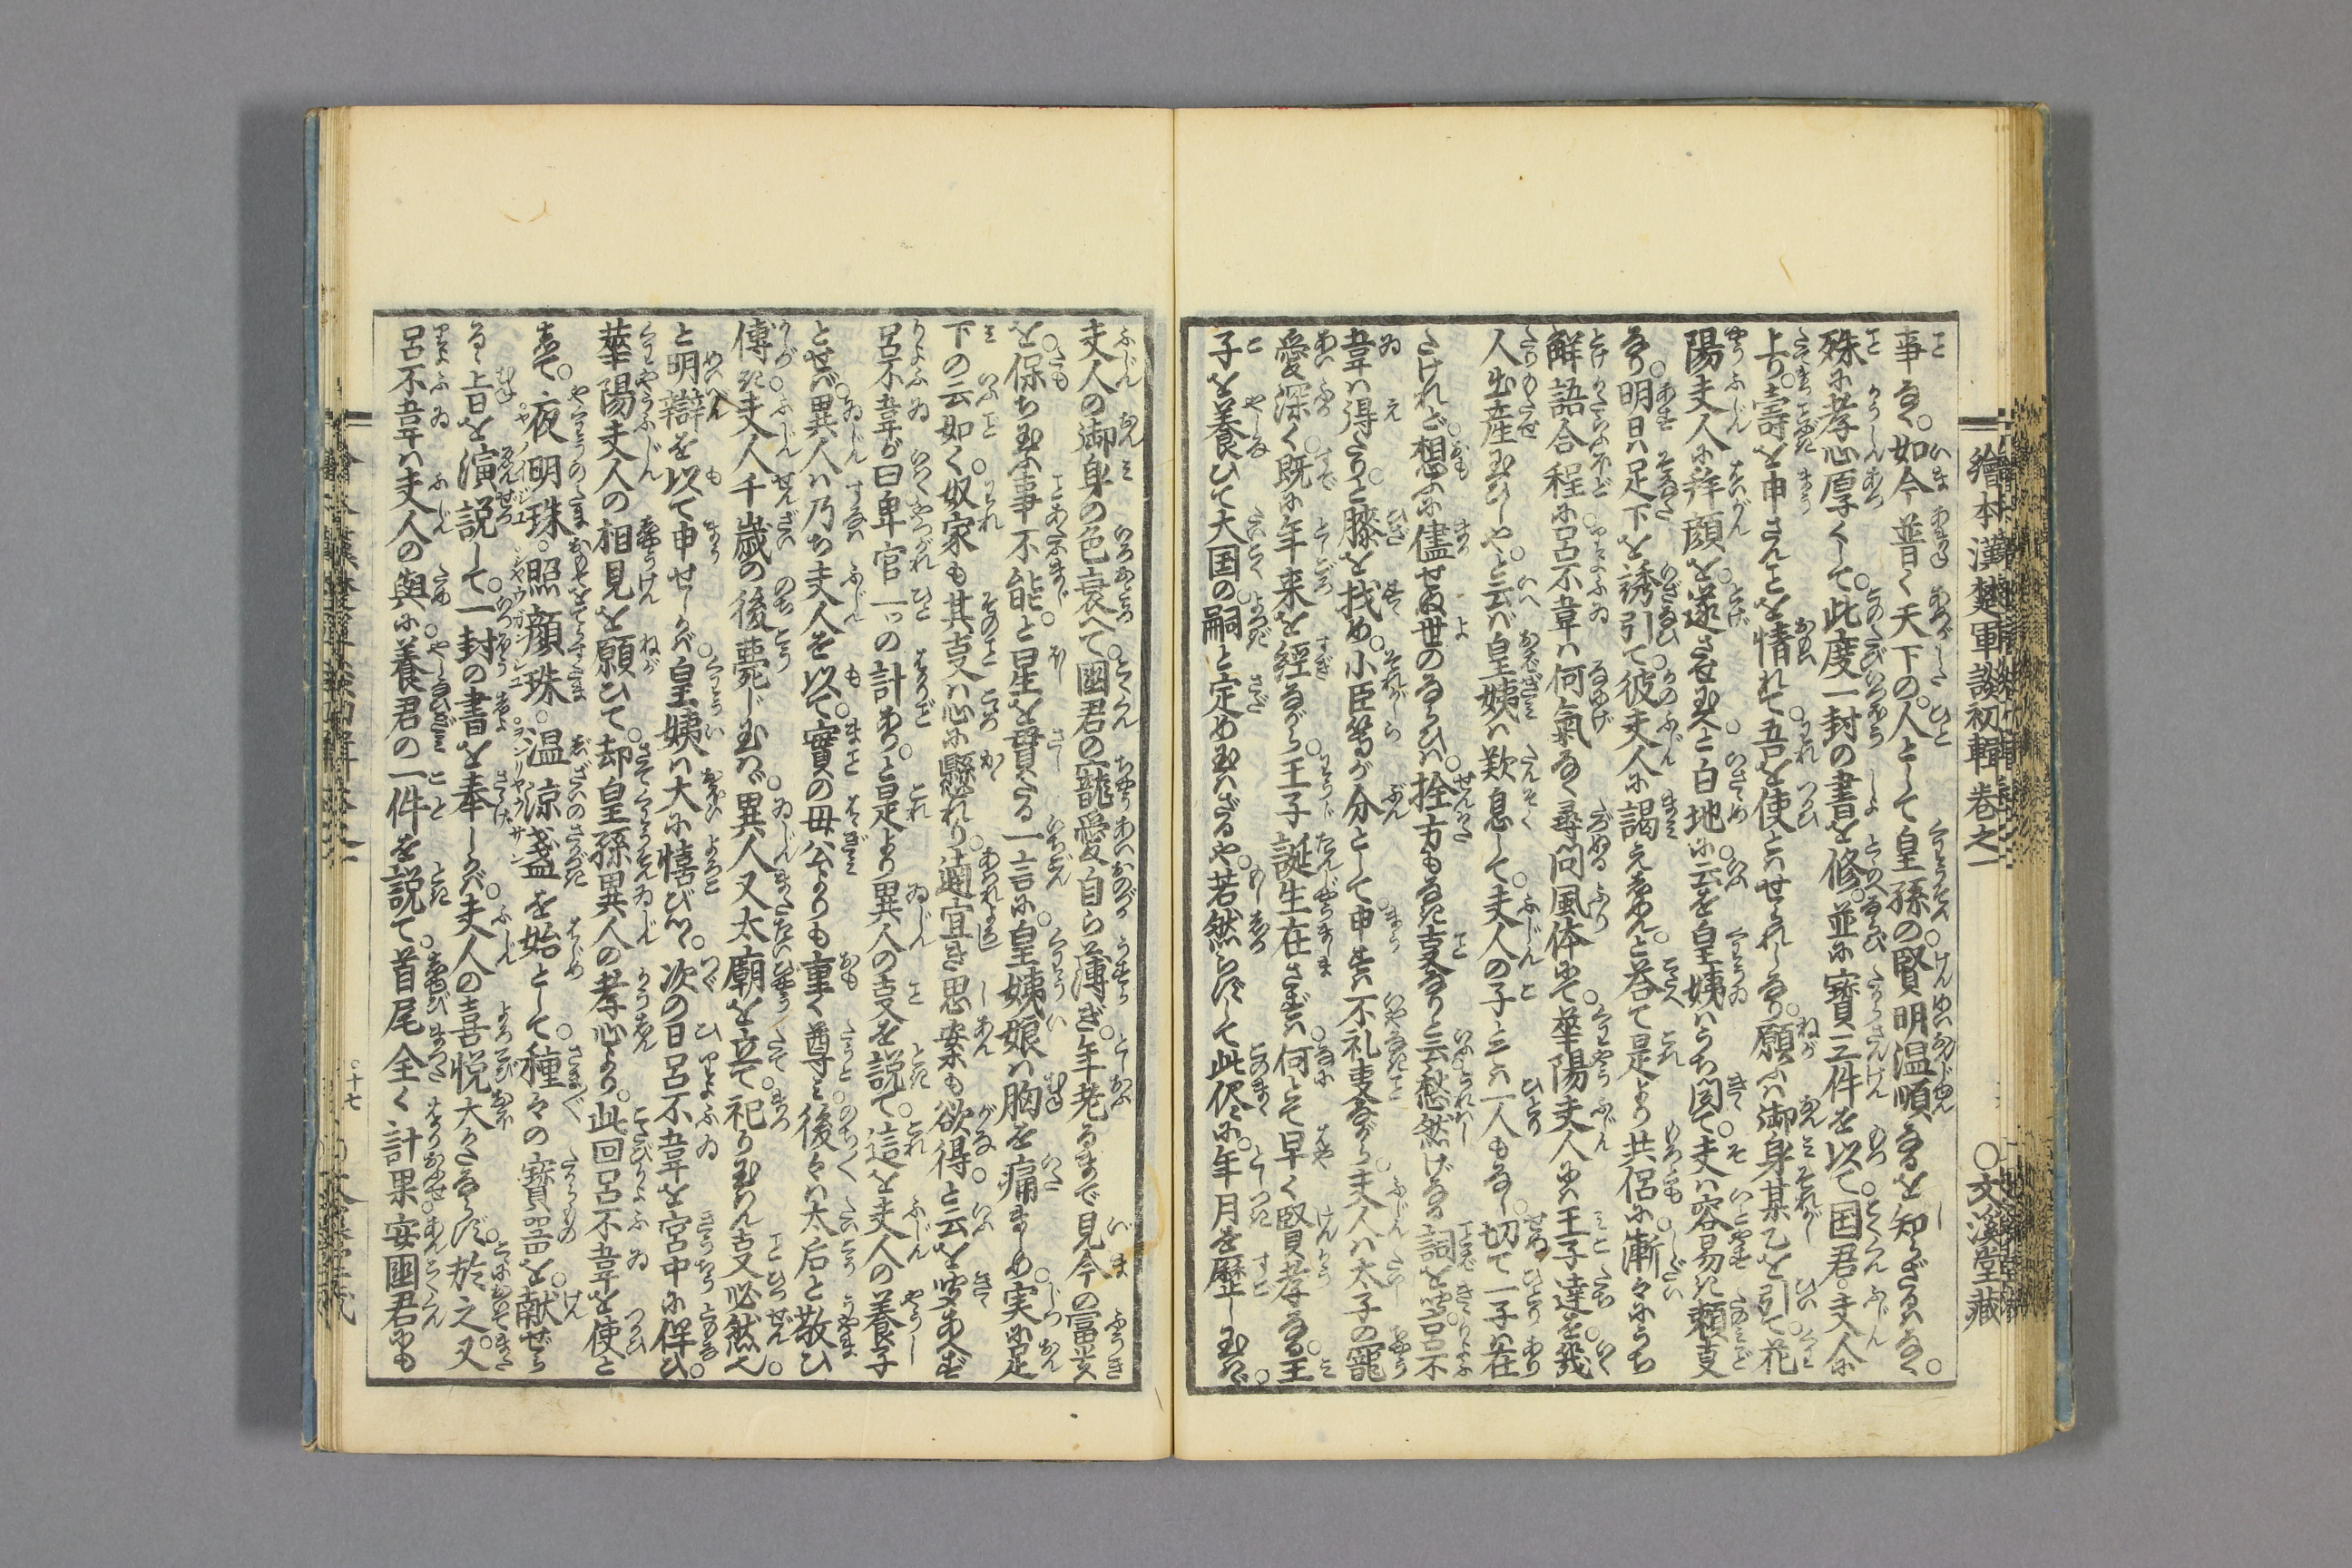 繪本漢楚軍談初輯卷之一 ○文溪堂藏
事なく。如今普く天下の人として皇孫の賢明温順なるを知らざるはなく。
殊に孝心厚くして。此度一封の書を修。並に寶三件を以て。国君。夫人に
上り。壽を申さんとを情れて。吾を使とはせられしなり。願ふは御身某乙を引て。花
陽夫人に拜顔を遂させ玉へと。白地に云を皇姨はうち聞て。夫は容易き頼叓
なり。明日は足下を誘引て。彼夫人に謁えまゐらせんと。荅て是より共侶に。漸々にうち
解語合程に。呂不韋は何氣なく尋問風体にて。華陽夫人には王子達を。幾
人出産玉ひしやと云ば。皇姨は歎息して。夫人の子とては一人もなし。切て一子は在
たけれど。想ふに儘せぬ世のならひ。拴方もなき叓なりと云。愁然げなる詞を。呂不
韋は得たりと膝を找め。小臣等が分として申せば不礼叓ながら。夫人は太子の寵
愛深く。既に年来を經ながら。王子誕生在さずば。何とて早く賢孝なる王
子を養ひて。大国の嗣と定め玉はざるや。若然らずして此侭に。年月を歴し玉はゞ。
夫人の御身の色衰へて。國君の寵愛自ら薄ぎ。年老るまで見今の富貴
を。保ち玉ふ事不能と。星を貫たる一言に。皇姨娘は胸を痛ましめ。実に足
下の云如く。奴家も其叓は心に懸れり。適宜き思案も欲得と云を。呂
呂不韋が曰。卑官一ッの計あり。と是より異人の叓を説て。這を夫人の養子
とせば。異人は乃ち夫人を以て。實の母公よりも重く尊み。後々は太后と敬ひ
傅き。夫人千歳の後薨じ玉はゞ。異人又太廟を立て。祀り玉はん叓必然也。
と明辯を以て申せしかば。皇姨は大に憘び。次の日呂不韋を宮中に伴ひ。
華陽夫人の相見を願ひて。却皇孫異人の孝心より。此回呂不韋を使と
して。夜明珠。照顔珠。温涼盞を始として。種々の寶器を。献ぜら
るゝ旨を演説して。一封の書を奉しかば。夫人の喜悦大かたならず。於之又
呂不韋は夫人の與に。養君の一件を説て。首尾全く計果。安國君にも
○十七